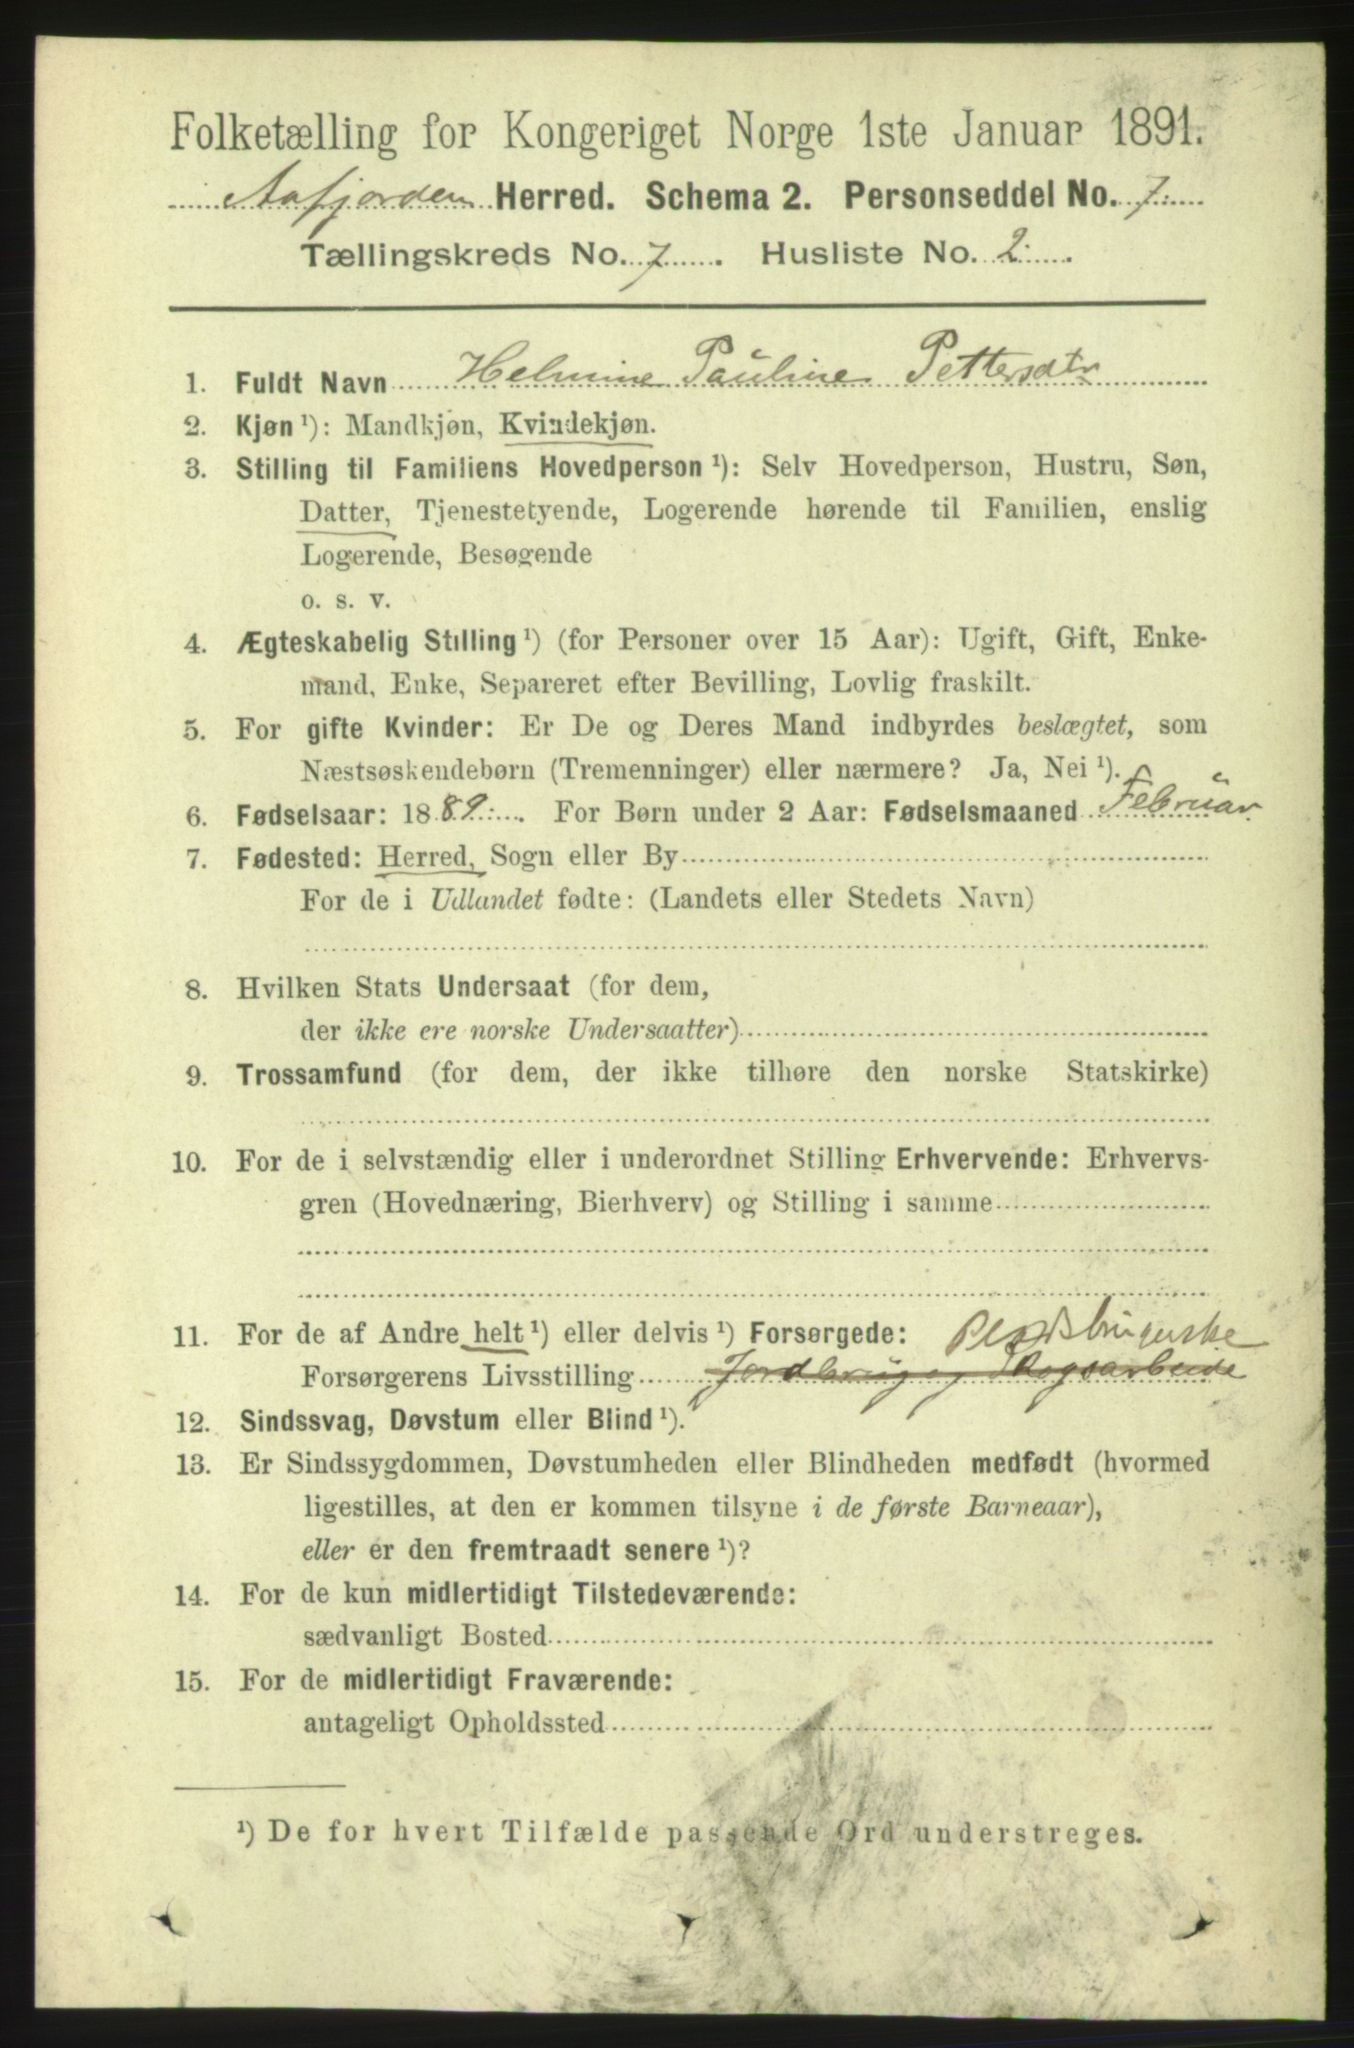 Folketælling for Kongeriget Norge 1ste Januar 1891.
Aafjorden Herred. Schema 2. Personseddel No. 7.
Tællingskreds No. 7. Husliste No. 2.
1. Fuldt Navn Helmine Pauline Pettersdtr
2. Kjøn ¹): Mandkjøn, Kvindekjøn.
3. Stilling til Familiens Hovedperson ¹): Selv Hovedperson, Hustru, Søn,
Datter, Tjenestetyende, Logerende hørende til Familien, enslig
Logerende, Besøgende
o. s. v.
4. Ægteskabelig Stilling ¹) (for Personer over 15 Aar): Ugift, Gift, Enke-
mand, Enke, Separeret efter Bevilling, Lovlig fraskilt.
5. For gifte Kvinder: Er De og Deres Mand indbyrdes beslægtet, som
Næstsøskendebørn (Tremenninger) eller nærmere? Ja, Nei ¹).
6. Fødselsaar: 1889. For Børn under 2 Aar: Fødselsmaaned Februar.
7. Fødested: Herred, Sogn eller By
For de i Udlandet fødte: (Landets eller Stedets Navn)
8. Hvilken Stats Undersaat (for dem,
der ikke ere norske Undersaatter)
9. Trossamfund (for dem, der ikke tilhøre den norske Statskirke)
10. For de i selvstændig eller i underordnet Stilling Erhvervende: Erhvervs-
gren (Hovednæring, Bierhverv) og Stilling i samme
11. For de af Andre helt ¹) eller delvis ¹) Forsørgede:
Forsørgerens Livsstilling Jordbrug og Skogsarbeide
12. Sindssvag, Døvstum eller Blind ¹).
13. Er Sindssygdommen, Døvstumheden eller Blindheden medfødt (hvormed
ligestilles, at den er kommen tilsyne i de første Barneaar),
eller er den fremtraadt senere ¹)?
14. For de kun midlertidigt Tilstedeværende:
sædvanligt Bosted
15. For de midlertidigt Fraværende:
antageligt Opholdssted
¹) De for hvert Tilfælde passende Ord understreges.